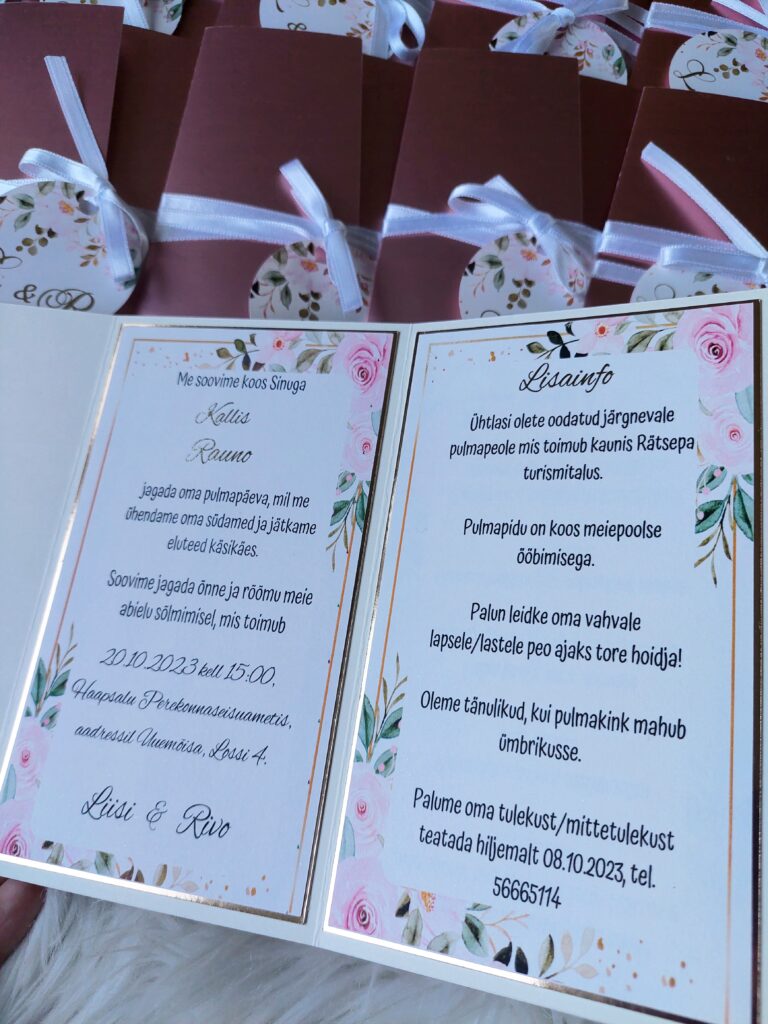 &R
Me soovime koos Sinuga
Kallis
Rauno
jagada oma pulmapäeva, mil me
ühendame oma südamed ja jätkame
eluteed käsikäes.
Soovime jagada õnne ja rõõmu meie
abielu sõlmimisel, mis toimub
20.10.2023 kell 15:00,
Haapsalu Perekonnaseisuametis,
aadressil Uuemõisa, Lossi 4.
Liisi & Rivo
Lisainfo
Ühtlasi olete oodatud järgnevale
pulmapeole mis toimub kaunis Rätsepa
turismitalus.
Pulmapidu on koos meiepoolse
ööbimisega.
Palun leidke oma vahvale
lapsele/lastele peo ajaks tore hoidja!
Oleme tänulikud, kui pulmakink mahub
ümbrikusse.
Palume oma tulekust/mittetulekust
teatada hiljemalt 08.10.2023, tel.
56665114